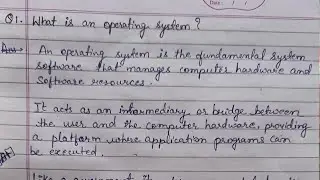 Q1. What is an operating system?
Ans→ An operating system is the fundamental system
software that manages computer hardware and
software resources.
It acts as an intermediary or bridge between
the user and the computer hardware, providing
a platform where application programs can
be executed.